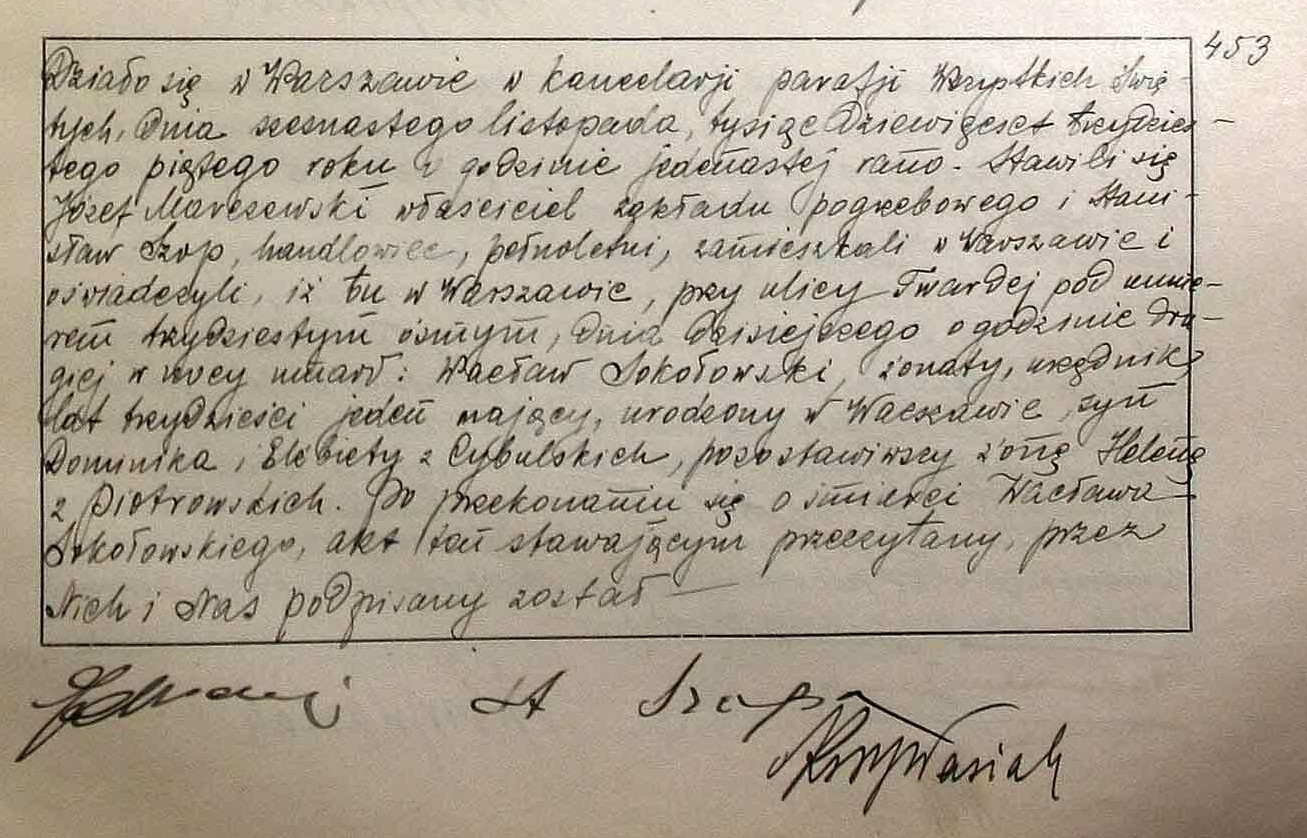 453
Działo się w Warszawie w kancelarji parafji Wszystkich Świę-
tych, dnia szesnastego listopada, tysiąc dziewięćset trzydzies-
tego piątego roku o godzinie jedenastej rano. Stawili się
Józef Marczewski właściciel zakładu pogrzebowego i Stani-
sław Szop, handlowiec, pełnoletni, zamieszkali w Warszawie i
oświadczyli, iż tu w Warszawie, przy ulicy Twardej pod nume-
rem trzydziestym ósmym, dnia dzisiejszego o godzinie dru-
giej w nocy umarł: Wacław Sokołowski, żonaty, urzędnik,
lat trzydzieści jeden mający, urodzony w Warszawie, syn
Dominika i Elżbiety z Cybulskich, pozostawiwszy żonę Helenę
z Piotrowskich. Po przekonaniu się o śmierci Wacława
Sokołowskiego, akt ten stawającym przeczytany, przez
Nich i Nas podpisany został —
St Szop